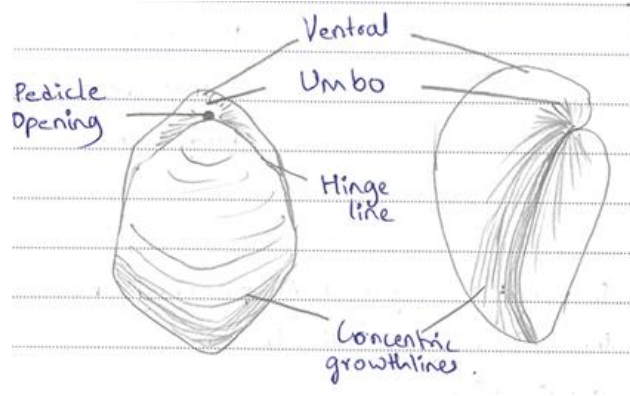 Ventral
Umbo
Pedicle
Opening
Hinge
line
Concentric
growthlines.